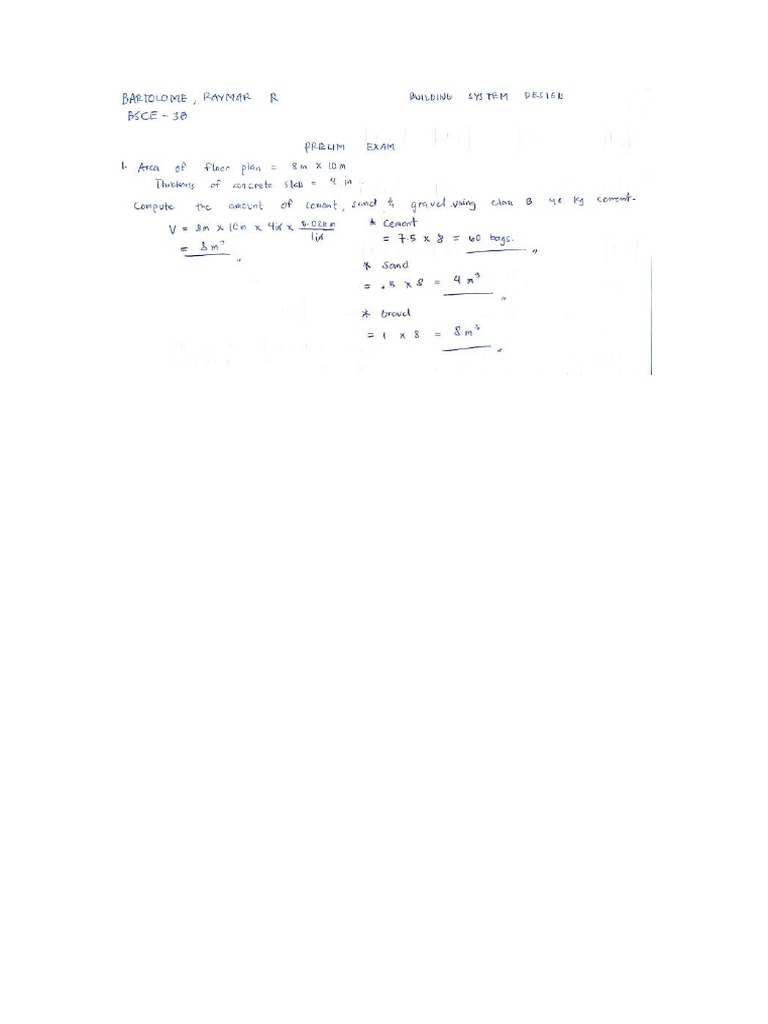 BARTOLOME, RAYMAR R
BUILDING SYSTEM DESIGN
BSCE - 3B
PRELIM EXAM
1. Area of floor plan = 8m x 10m
Thickness of concrete slab = 4 in.
Compute the amount of cement, sand & gravel using class B 40 kg cement.
V = 8m x 10m x 4in x 0.025m / 1in
= 8m³
* Cement
= 7.5 x 8 = 60 bags.
* Sand
= .5 x 8 = 4 m³
* Gravel
= 1 x 8 = 8m³